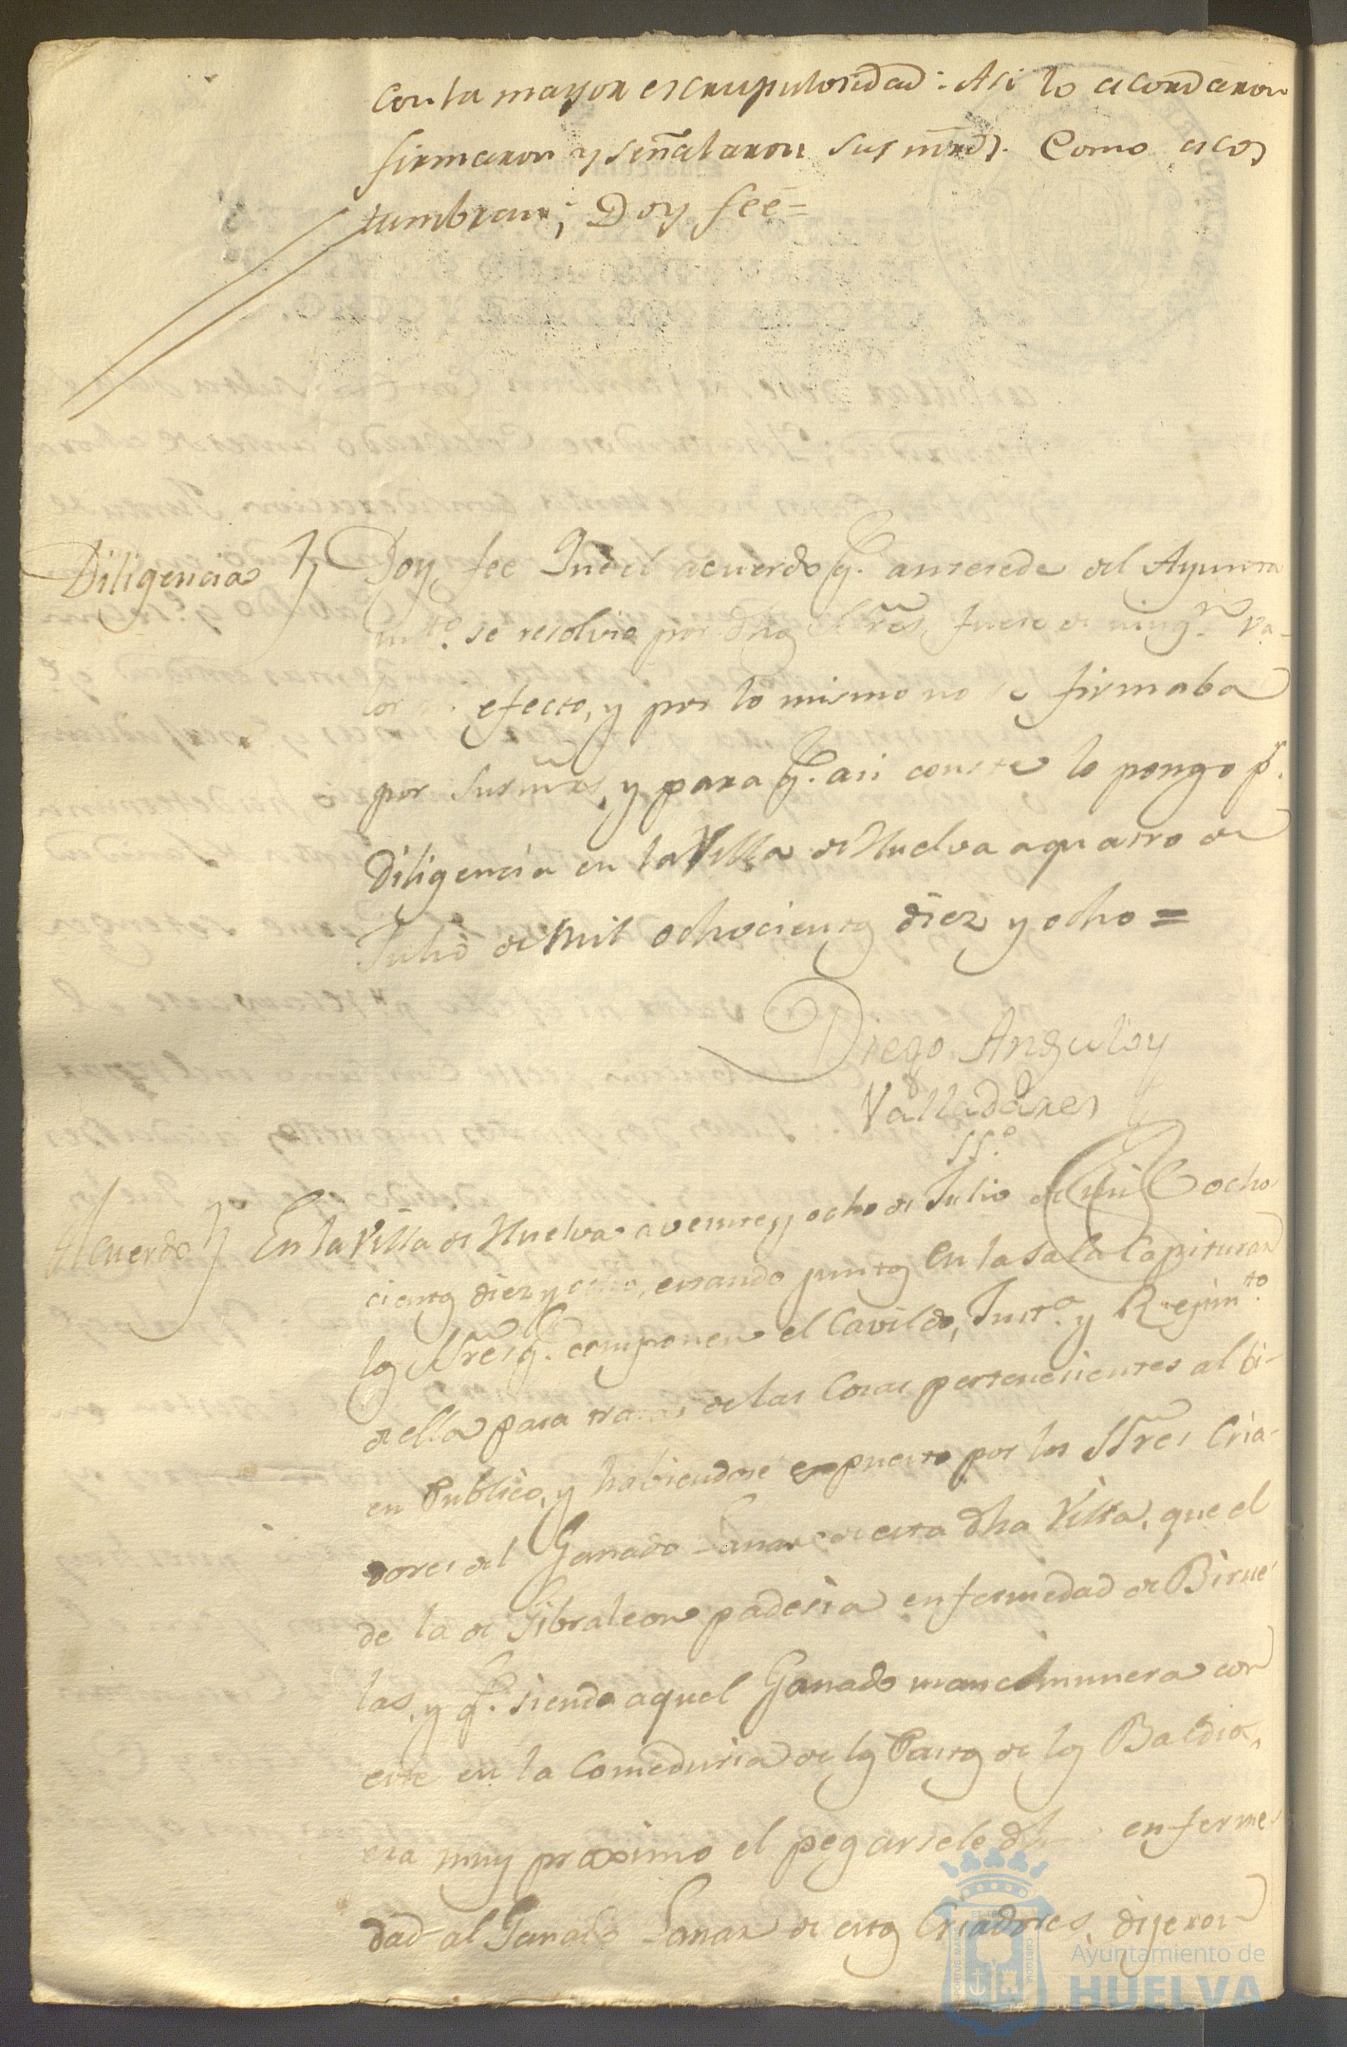 con la mayor escrupulosidad: Asi lo acordaron
firmaron y señalaron sus mrds. Como acos
tumbran; Doy fee=
Diligencia Doy fee Que el acuerdo q.e antesede del Ayunta
mto. se resolvio por dhos Sres. fuese de ning.n va-
lor efecto, y por lo mismo no se firmaba
por sus mrds, y para q.e asi conste lo pongo pr.
Diligencia en la Villa de Huelva a quatro de
Julio de Mil ochocientos diez y ocho =
Diego Angulo y
Valladares
SS.o
Acuerdo En la Villa de Huelva a veinte y ocho de Julio de mil ocho
cientos diez y ocho, estando juntos en la Sala Capitular
los Sres. q.e componen el Cavildo, Just.a y Rejim.to
de ella para tratar de las Cosas pertenesientes al bi-
en Publico, y habiendose expuesto por los SSres Cria-
dores del Ganado Lanar de esta dha Villa, que el
de la de Gibraleon padesia enfermedad de Birue
las, y q.e siendo aquel Ganado mancomunera con
este en la Comeduria de los Pastos de los Baldios,
era muy proximo el pegarsele dha enferme
dad al Ganado Lanar de estos Criadores, dijeron
Ayuntamiento de
HUELVA